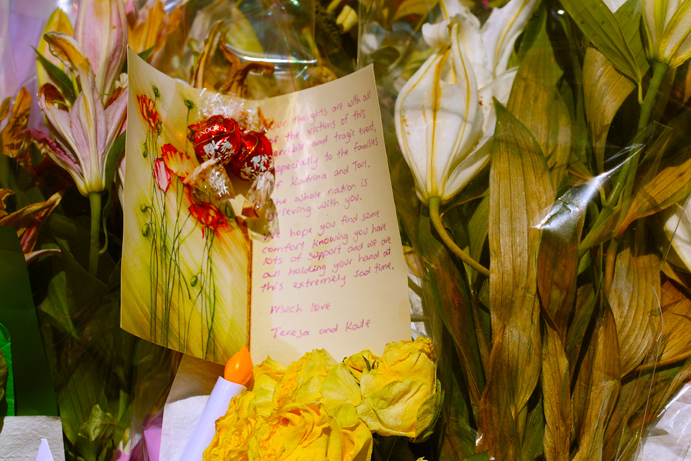 thoughts are with all
the victims of this
and tragic event,
especially to the families
of Katrina and Tori.
The whole nation is
grieving with you.
hope you find some
comfort knowing you have
lots of support and we are
all holding your hand at
this extremely sad time.
Much love
Teresa and Kate